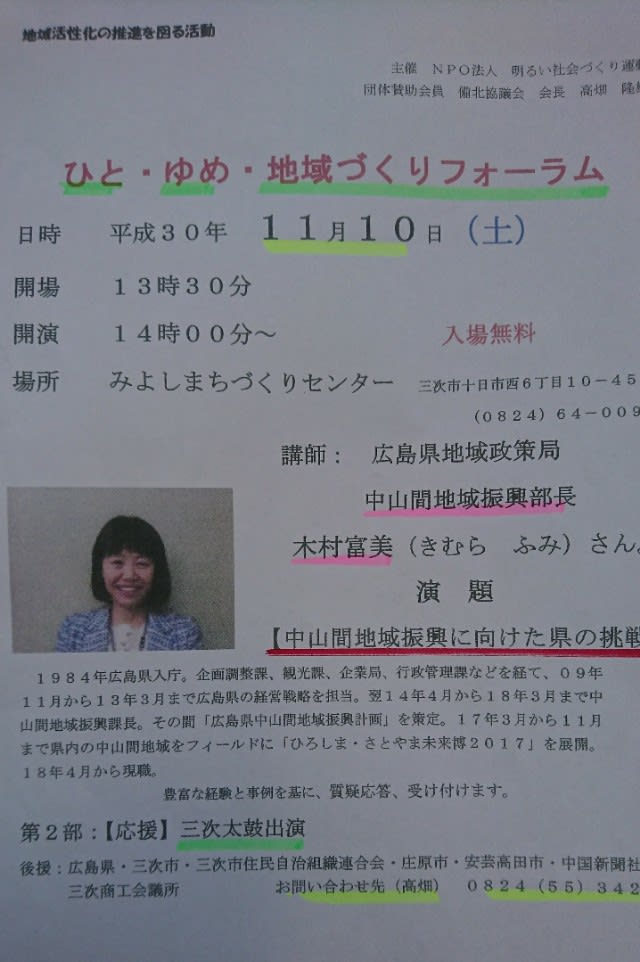 地域活性化の推進を図る活動
主催　ＮＰＯ法人　明るい社会づくり運動
団体賛助会員　備北協議会　会長　高畑　隆
ひと・ゆめ・地域づくりフォーラム
日時　平成３０年　１１月１０日（土）
開場　１３時３０分
開演　１４時００分～　入場無料
場所　みよしまちづくりセンター　三次市十日市西６丁目１０－４５
（０８２４）６４－００９
講師：　広島県地域政策局
中山間地域振興部長
木村富美（きむら　ふみ）さん。
演　題
【中山間地域振興に向けた県の挑戦
１９８４年広島県入庁。企画調整課、観光課、企業局、行政管理課などを経て、０９年
１１月から１３年３月まで広島県の経営戦略を担当。翌１４年４月から１８年３月まで中
山間地域振興課長。その間「広島県中山間地域振興計画」を策定。１７年３月から１１月
まで県内の中山間地域をフィールドに「ひろしま・さとやま未来博２０１７」を展開。
１８年４月から現職。
豊富な経験と事例を基に、質疑応答、受け付けます。
第２部：【応援】三次太鼓出演
後援：広島県・三次市・三次市住民自治組織連合会・庄原市・安芸高田市・中国新聞社
三次商工会議所　お問い合わせ先（高畑）　０８２４（５５）３４２